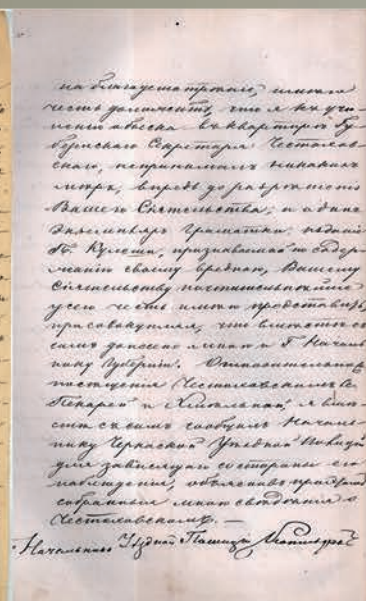 на благоусмотрение, имѣю
честь доложить, что я къ учи-
ненію обыска въ квартирѣ Гу-
бернскаго Секретаря Честахов-
скаго, непринималъ никакихъ
мѣръ, впредь до разрѣшенія
Вашего Сіятельства; и одинъ
Экземпляръ Граматки, изданіе
П. Кулеша, признаваемой по содер-
жанію своему вредною, Вашему
Сіятельству почтительнѣйше
честь имѣю представить,
присовокупляя, что вмѣстѣ съ
симъ донесено мною и Г. Началь-
нику Губерніи. Относительно
посѣщенія Честаховскимъ С.
Пекарей и Хмѣльной, я вмѣ-
стѣ съ симъ сообщилъ Началь-
нику Черкаской Уѣздной Полиціи
для зависящаго со стороны его
наблюденія, объяснивъ при этомъ
собранныя мною свѣдѣнія о
Честаховскомъ. —
Начальникъ Уѣздной Полиціи